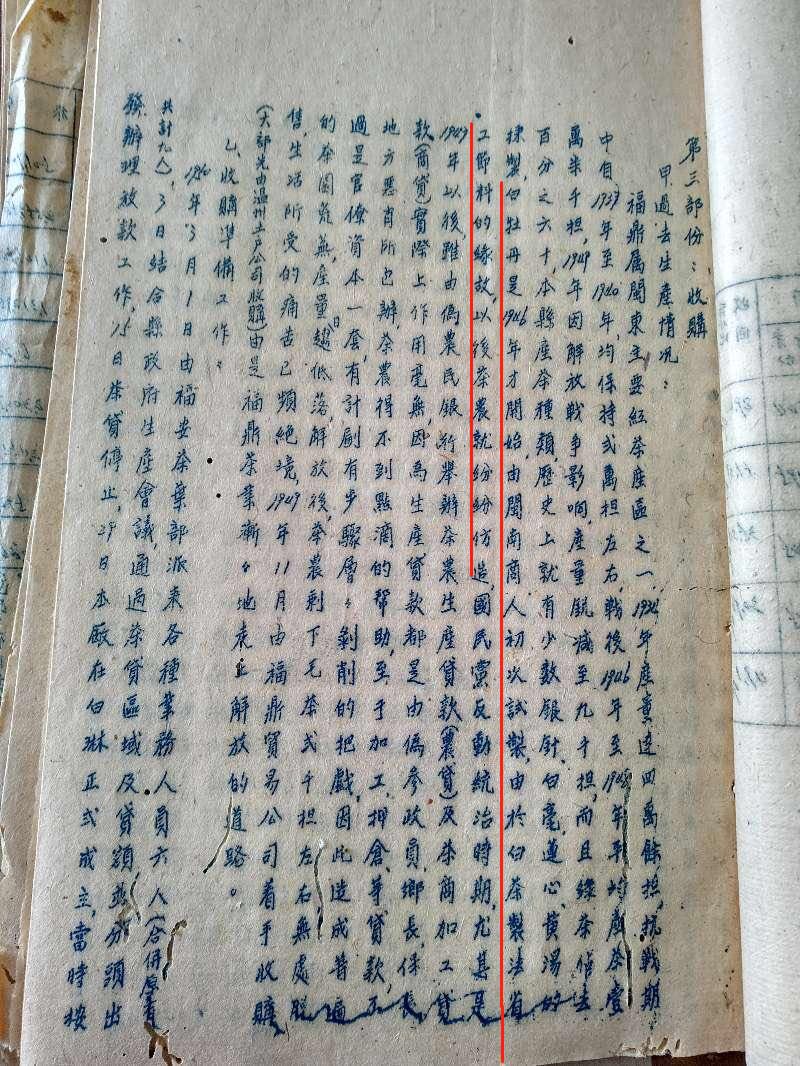 第三部份：收購
甲、過去生產情況：
福鼎属閩東主要紅茶產區之一，1936年產量達四萬餘担，抗戰期
中自1937年至1940年，均保持弍萬担左右，戰後1946年至1948年平均產茶壹
萬柒千担，1949年因解放戰争影响，產量銳減至九千担，而且綠茶佔去
百分之六十，本縣產茶種類歷史上就有少數銀針、白毫、蓮心、黃湯的
採製，白牡丹是1946年才開始，由閩南商人初次試製，由於白茶製法省
工節料的緣故，以後茶農就紛紛仿造，國民黨反動統治時期，尤其是
1947年以後雖由偽農民銀行舉辦茶農生產貸款（農貸）及茶商加工貸
款（商貸）實際上作用毫無，因為生產貸款都是由偽參政員，鄉長，保長
地方惡肖所包辦，茶農得不到點滴的帮助，至于加工，押倉，等貸款，不
過是官僚資本一套，有計劃有步驟層々剝削的把戲，因此造成普遍
的茶園荒蕪，產量日趨低落，解放後，茶農剩下毛茶弍千担左右，無處脱
售，生活所受的痛苦已頻絶境，1949年11月由福鼎貿易公司着手收購
（大部先由温州土产公司收購）由是福鼎茶業漸々地走上解放的道路。
乙、收購準備工作：
1950年3月1日由福安茶葉部派來各種業務人員六人（合併原有
共計九人），3日結合縣政府生產會議，通過茶貸區域及貸額，並分頭出
發辦理放款工作，15日茶貸停止，29日本廠在白琳正式成立，當時按